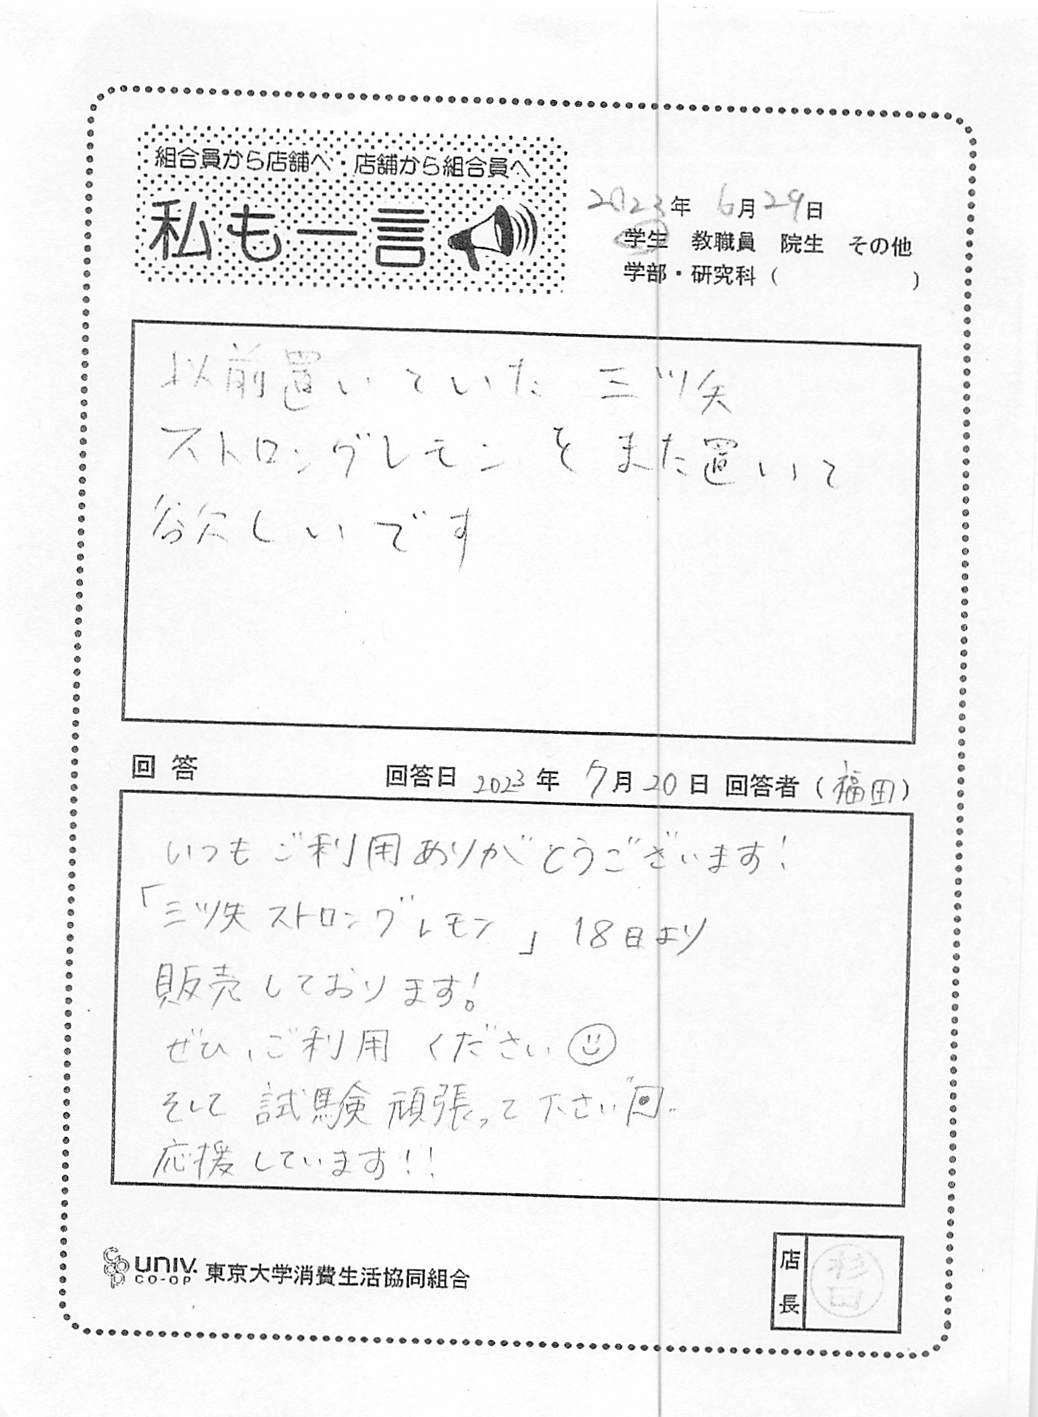 組合員から店舗へ・店舗から組合員へ
私も一言
2023年 6月29日
学生 教職員 院生 その他
学部・研究科（ ）
以前置いていた 三ツ矢
ストロングレモン を また置いて
欲しいです
回答 回答日 2023年 7月20日 回答者（福田）
いつもご利用ありがとうございます！
「三ツ矢 ストロングレモン」 18日より
販売しております！
ぜひ、ご利用 ください
そして 試験 頑張って下さい
応援しています！！
univ. CO-OP 東京大学消費生活協同組合
店長
杉田